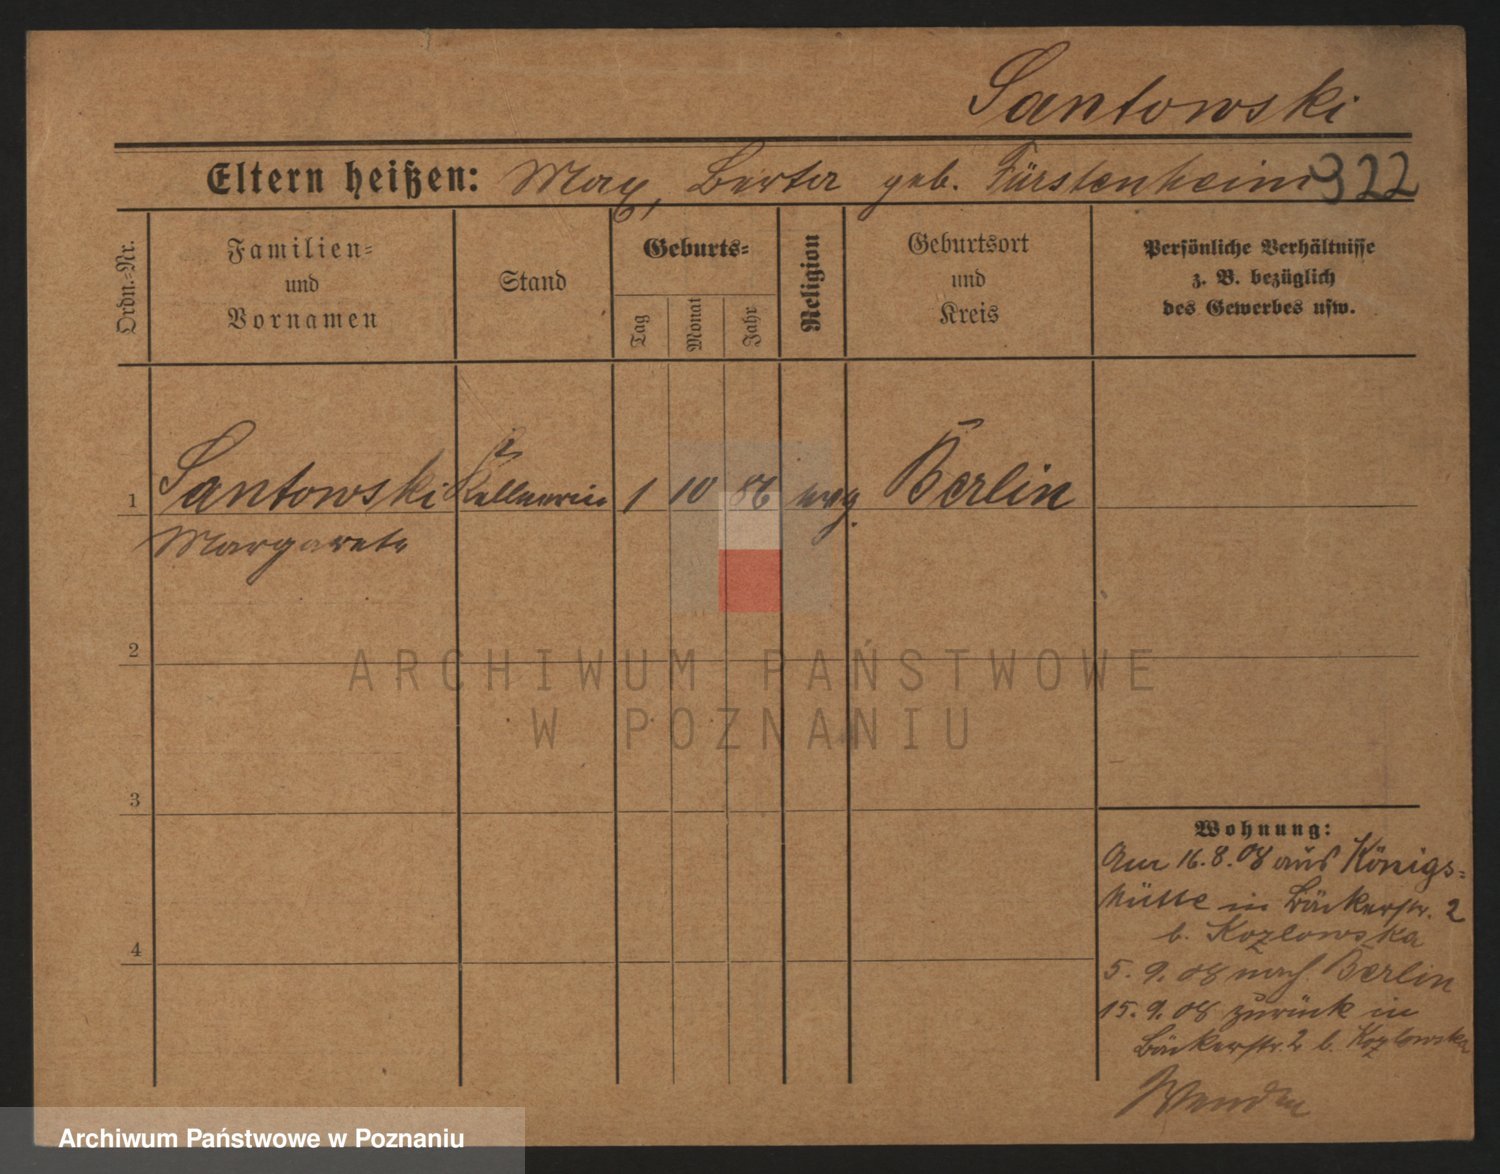 Santowski
Eltern heißen: Max, Berta geb. Fürstenheim 322
Ordn.=Nr.
Familien=
und
Vornamen
Stand
Geburts=
Tag
Monat
Jahr
Religion
Geburtsort
und
Kreis
Persönliche Verhältnisse
z. B. bezüglich
des Gewerbes usw.
1 Santowski Kellnerin 1 10 86 evg. Berlin
Margarete
2
3
4
Wohnung:
Am 16.8.08 aus Königs=
hütte in Bäckerstr. 2
b. Kozlowska
5. 9. 08 nach Berlin
15. 9. 08 zurück in
Bäckerstr. 2 b. Kozlowska
Wenden
ARCHIWUM PAŃSTWOWE
W POZNANIU
Archiwum Państwowe w Poznaniu